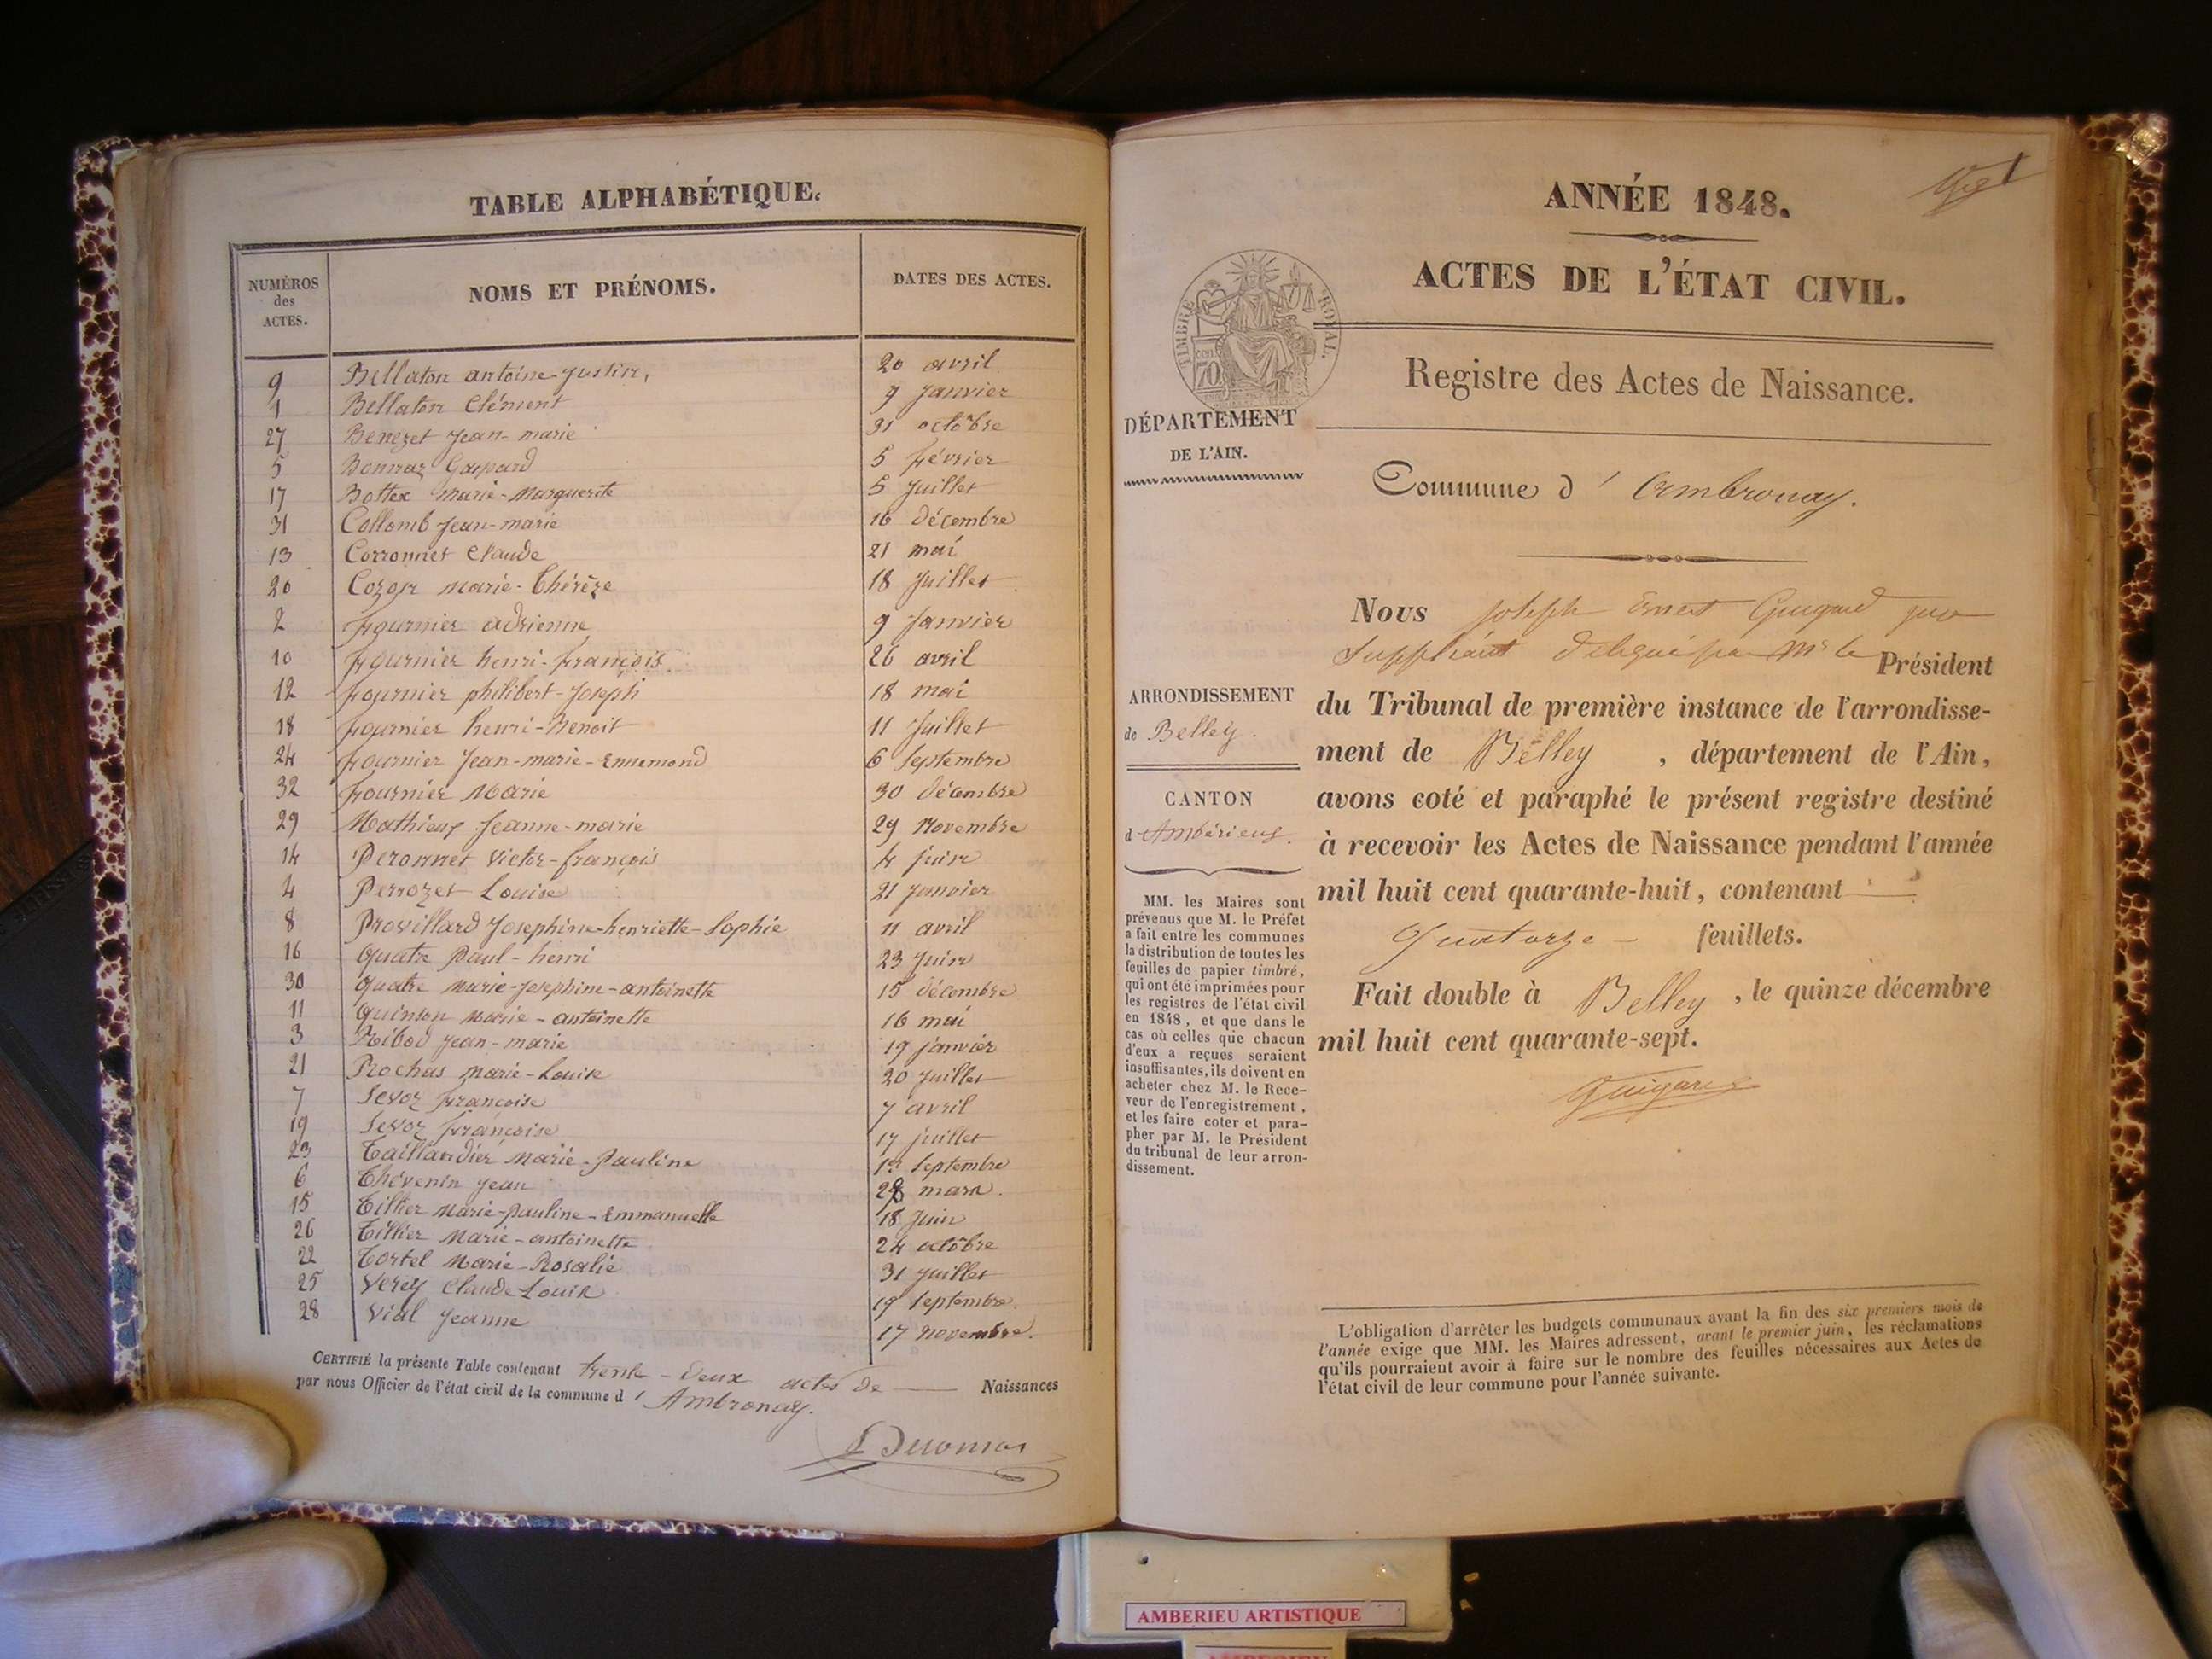 TABLE ALPHABÉTIQUE.
NUMÉROS des ACTES. NOMS ET PRÉNOMS. DATES DES ACTES.
9 Bellaton antoine-Justin, 20 avril
1 Bellaton Clément 9 Janvier
27 Benezet Jean-marie 31 octobre
5 Bonnaz Gaspard 5 février
17 Bottex marie-Marguerite 5 Juillet
31 Collomb Jean-marie 16 décembre
13 Corronnet Claude 21 mai
20 Cozon marie-Thérèze 18 Juillet
2 fournier adrienne 9 Janvier
10 fournier henri-françois 26 avril
12 fournier philibert-Joseph 18 mai
18 fournier henri-Benoit 11 Juillet
24 fournier Jean-marie-Ennemond 6 Septembre
32 fournier Marie 30 décembre
29 Mathieux Jeanne-marie 29 Novembre
14 Peronnet Victor-françois 4 juin
4 Perrozet Louise 21 Janvier
8 Provillard Josephine-henriette-Sophie 11 avril
16 Quatre Paul-henri 23 Juin
30 Quatre Marie-Josephine-antoinette 15 décembre
11 Quinson Marie-antoinette 16 mai
3 Ribod Jean-marie 19 janvier
21 Rochas Marie-Louise 20 Juillet
7 Sevoz françoise 7 avril
19 Sevoz françoise 17 juillet
23 Taillandier Marie-Pauline 1er Septembre
6 Thévenin Jean 28 mars.
15 Tillier Marie-pauline-Emmanuelle 18 Juin
26 Tillier Marie-antoinette 24 octobre
22 Tortel Marie-Rosalie 31 juillet
25 Verey Claude Louis 19 Septembre
28 Vial Jeanne 17 novembre.
CERTIFIÉ la présente Table contenant trente-deux actes de Naissances
par nous Officier de l'état civil de la commune d' Ambronay.
ANNÉE 1848.
ACTES DE L'ÉTAT CIVIL.
TIMBRE ROYAL.
cen. 70
Registre des Actes de Naissance.
DÉPARTEMENT
DE L'AIN.
Commune d' Ambronay.
ARRONDISSEMENT
de Belley.
CANTON
d'Ambérieux.
MM. les Maires sont
prévenus que M. le Préfet
a fait entre les communes
la distribution de toutes les
feuilles de papier timbré,
qui ont été imprimées pour
les registres de l'état civil
en 1848, et que dans le
cas où celles que chacun
d'eux a reçues seraient
insuffisantes, ils doivent en
acheter chez M. le Rece-
veur de l'enregistrement,
et les faire coter et para-
pher par M. le Président
du tribunal de leur arron-
dissement.
Nous Joseph Ernest Guigard juge
Suppléant délégué par Mr le Président
du Tribunal de première instance de l'arrondisse-
ment de Belley, département de l'Ain,
avons coté et paraphé le présent registre destiné
à recevoir les Actes de Naissance pendant l'année
mil huit cent quarante-huit, contenant
Quatorze feuillets.
Fait double à Belley, le quinze décembre
mil huit cent quarante-sept.
Guigard
L'obligation d'arrêter les budgets communaux avant la fin des six premiers mois de
l'année exige que MM. les Maires adressent, avant le premier juin, les réclamations
qu'ils pourraient avoir à faire sur le nombre des feuilles nécessaires aux Actes de
l'état civil de leur commune pour l'année suivante.
AMBERIEU ARTISTIQUE